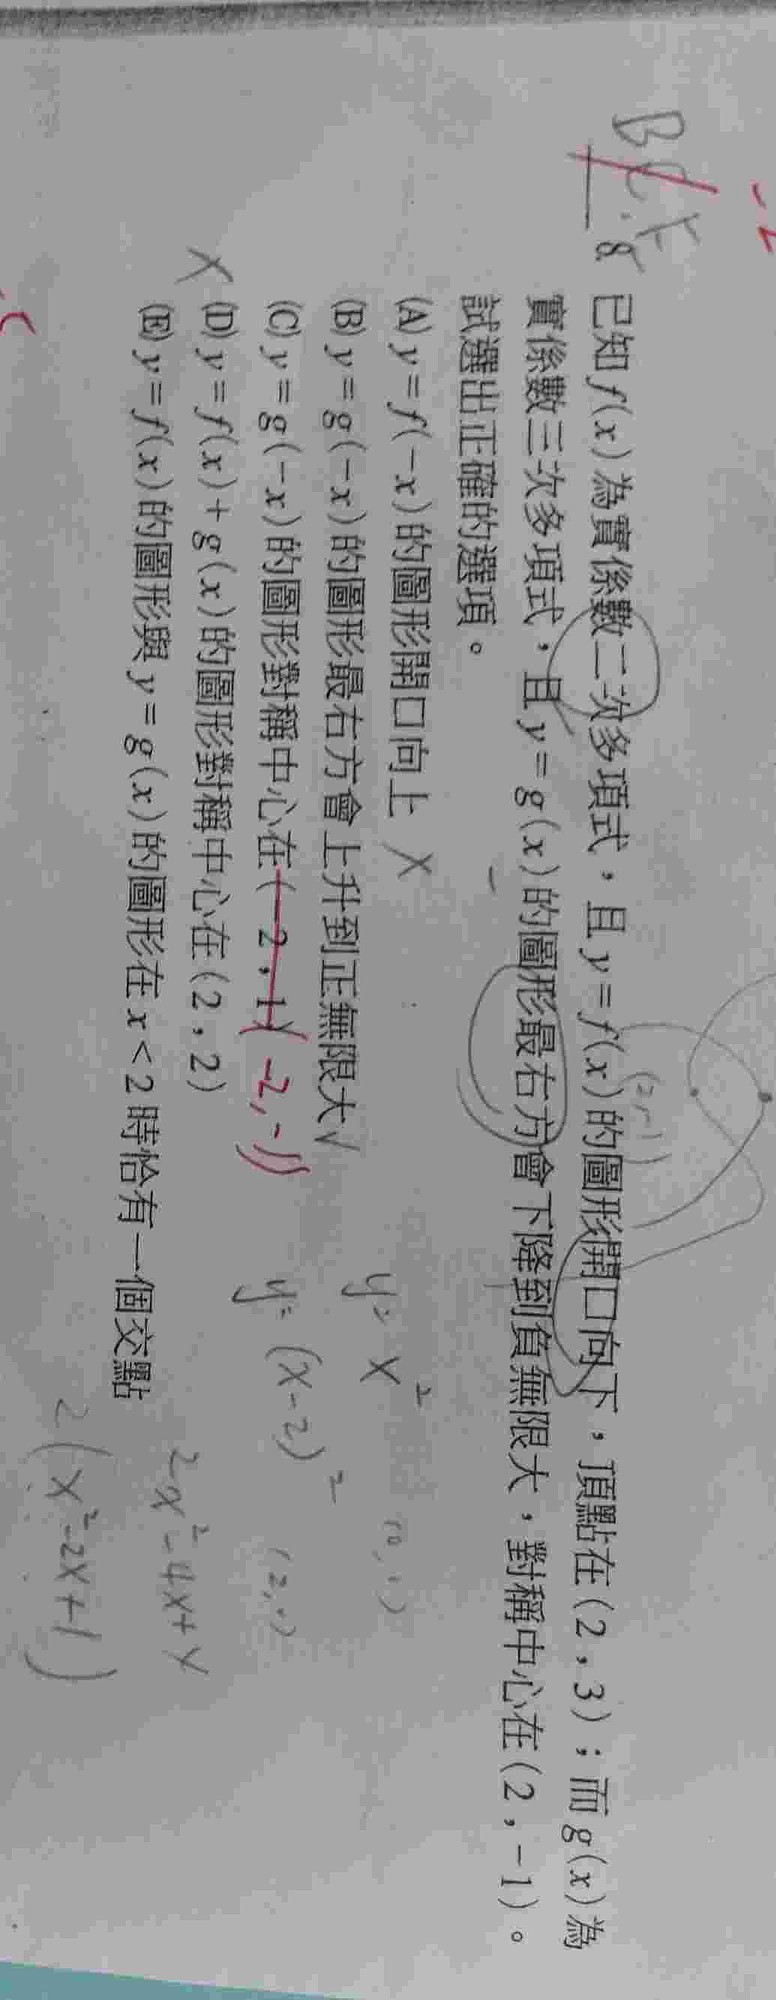 BC
8. 已知f(x)為實係數二次多項式，且y=f(x)的圖形開口向下，頂點在(2，3)；而g(x)為
實係數三次多項式，且y=g(x)的圖形最右方會下降到負無限大，對稱中心在(2，-1)。
試選出正確的選項。
(A) y=f(-x)的圖形開口向上 X
(B) y=g(-x)的圖形最右方會上升到正無限大√
(C) y=g(-x)的圖形對稱中心在(-2，1) (-2,-1)
X (D) y=f(x)+g(x)的圖形對稱中心在(2，2)
(E) y=f(x)的圖形與y=g(x)的圖形在x<2時恰有一個交點
(2,-1)
y=x²
y=(x-2)²
(2,0)
2x²-4x+
2(x²-2x+1)